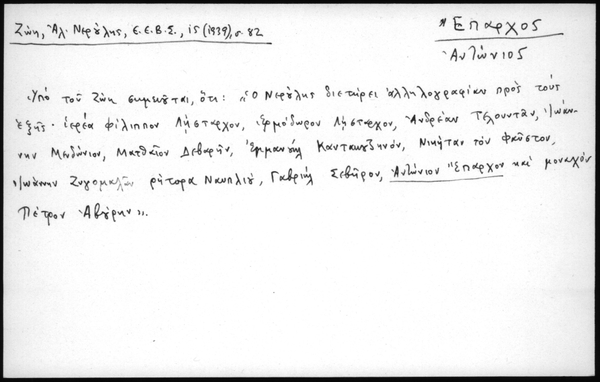 Ζώη, Ἀλ. Νερούλης, Ε.Ε.Β.Σ., ιε (1939), σ. 82
Ἔπαρχος
Ἀντώνιος
Ὑπὸ τοῦ Ζώη σημειοῦται, ὅτι: «Ὁ Νερούλης διετήρει ἀλληλογραφίαν πρὸς τοὺς
ἑξῆς· ἱερέα Φίλιππον Λήσταρχον, Ἑρμόδωρον Λήσταρχον, Ἀνδρέαν Τελουντᾶν, Ἰωάν-
νην Μινδώνιον, Ματθαῖον Δεβαρῆν, Ἐμμανουὴλ Καντακουζηνόν, Νικήταν τὸν Φαῦστον,
Ἰωάννην Ζυγομαλᾶν ῥήτορα Ναυπλίου, Γαβριὴλ Σεβῆρον, Ἀντώνιον Ἔπαρχον καὶ μοναχὸν
Πέτρον Ἀβούρην».